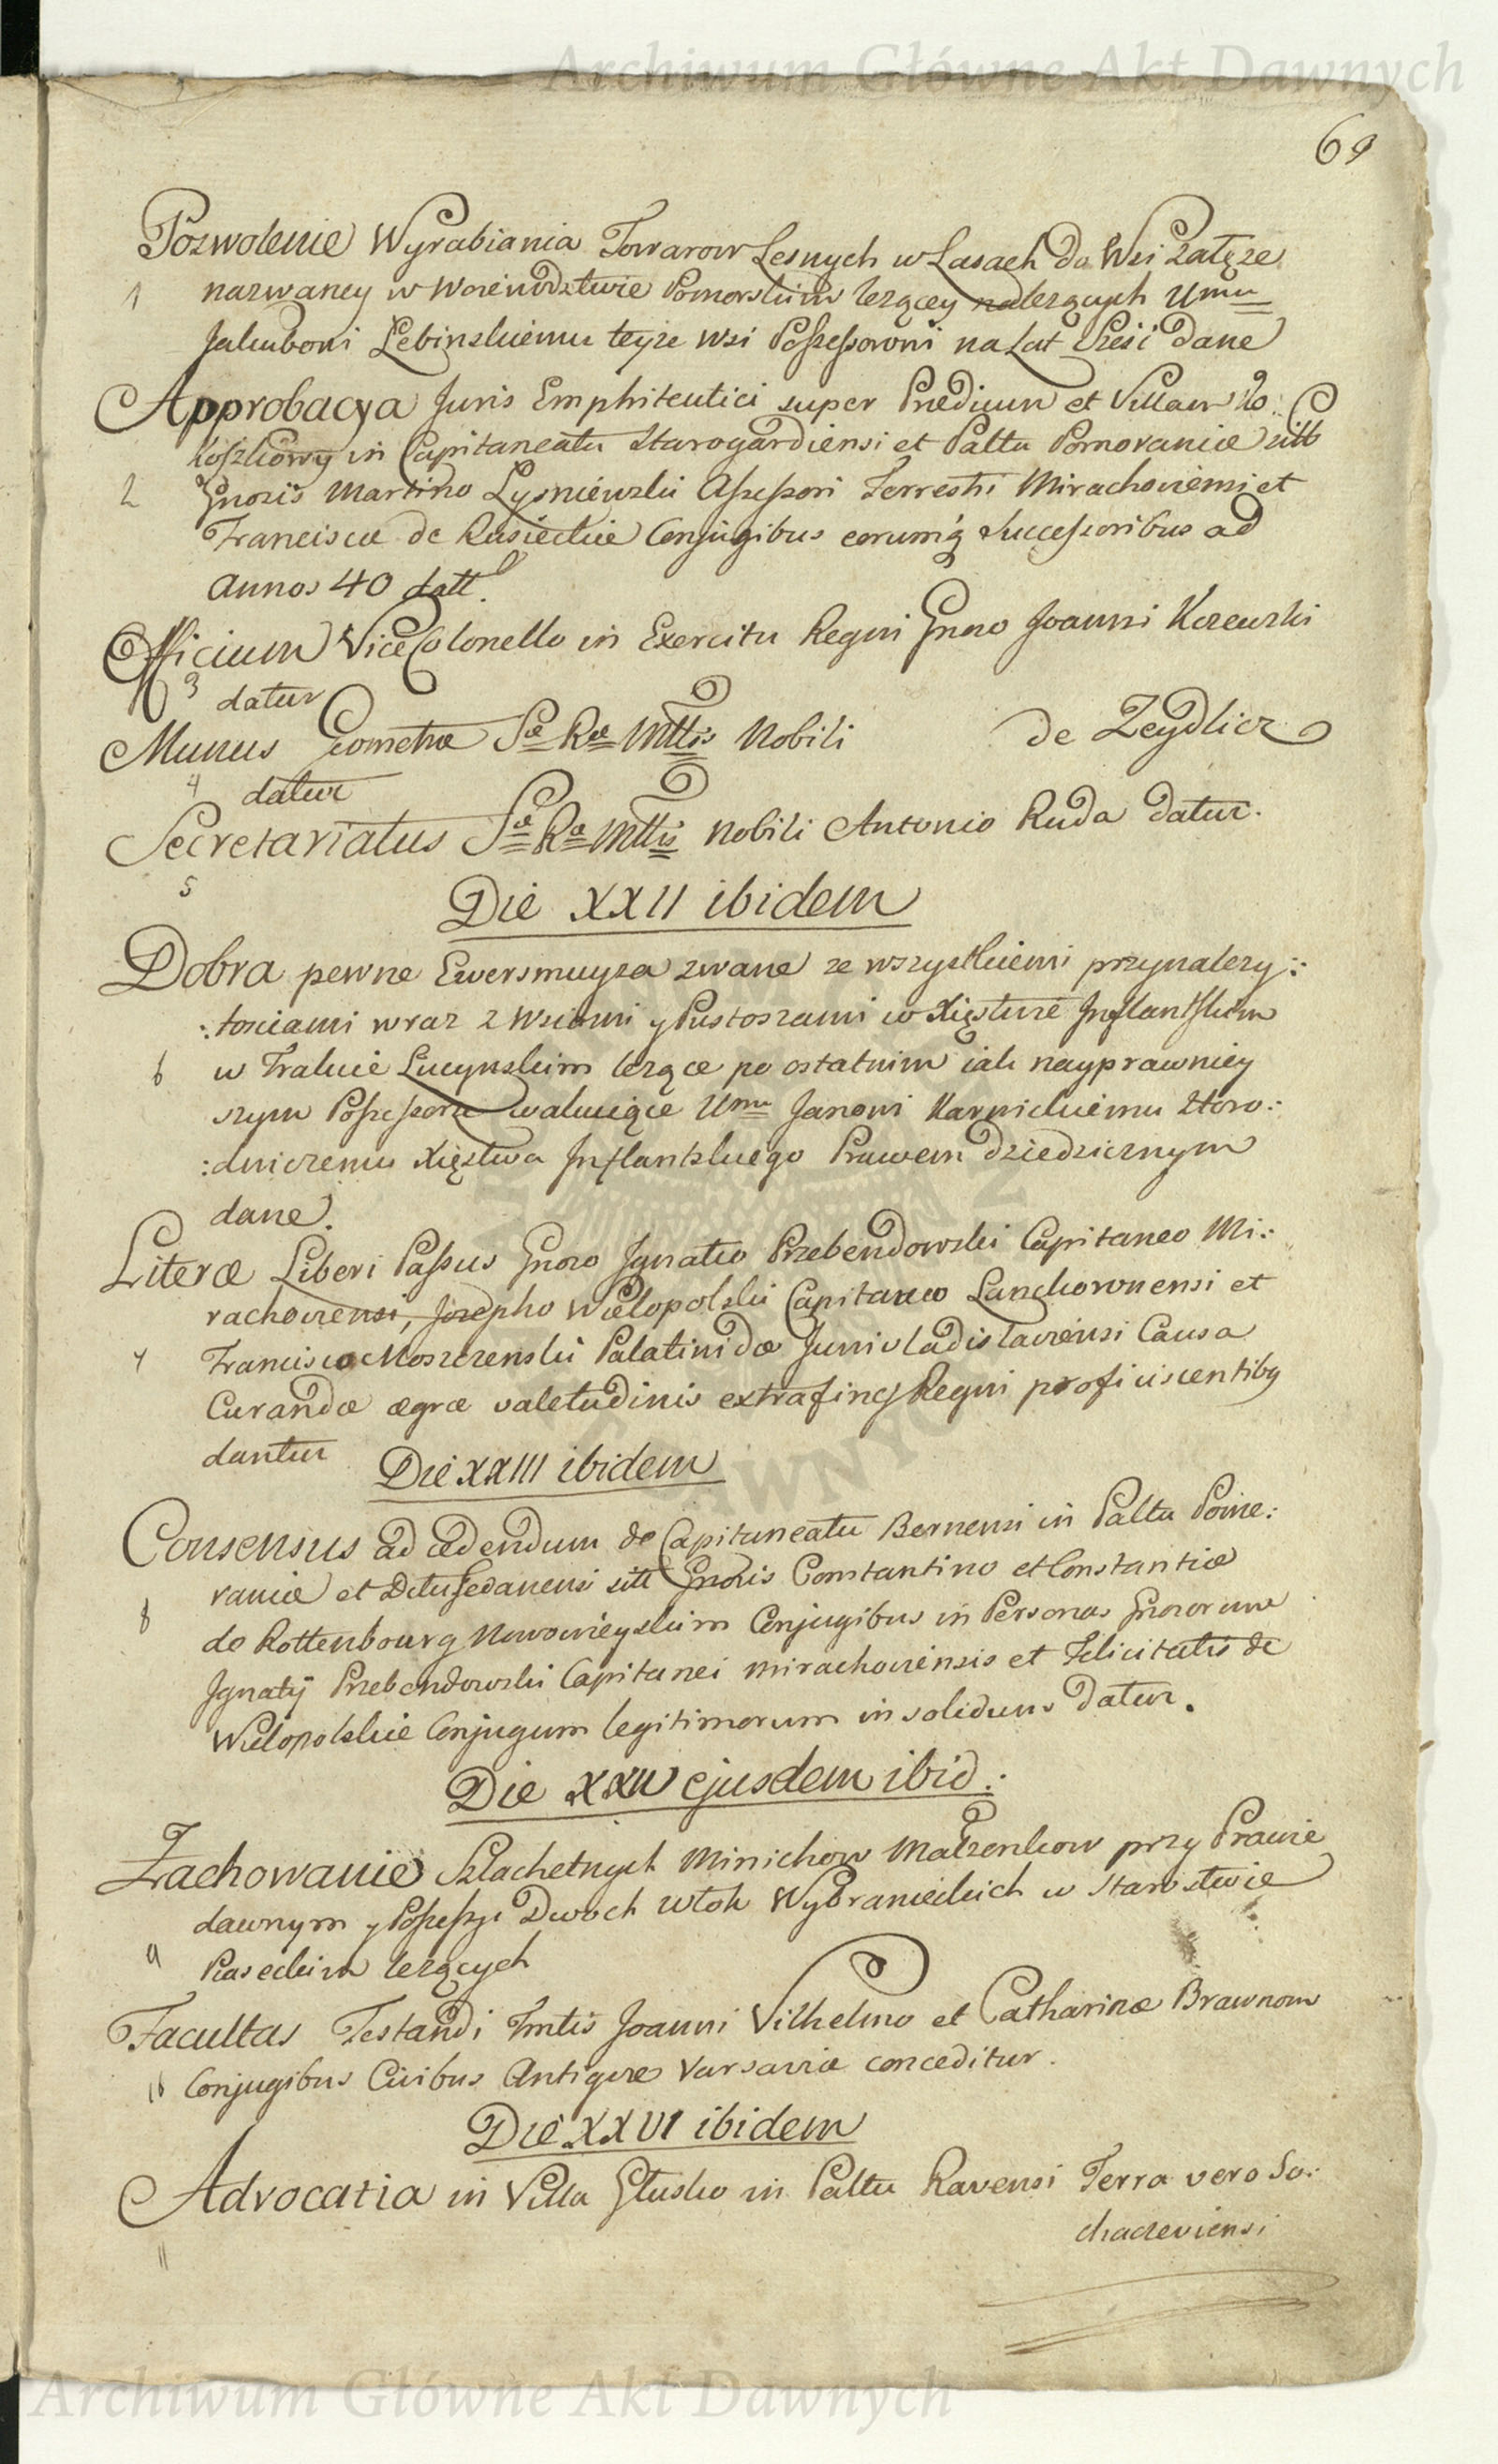 Archiwum Główne Akt Dawnych
69
Pozwolenie Wyrabiania Towarow Lesnych w Lasach do Wsi Załęze
1 nazwaney w Woiewodztwie Pomorskim lezącey nalezących Umu
Jakubowi Lebinskiemu teyze wsi Possessorowi na Lat Sześć dane
Approbacya Juris Emphiteutici super Prædium et Villam Ko:
koszkowy in Capitaneatu Starogardiensi et Palttu Pomeraniæ sitt
2 Gnosis Martino Lysniewski Assessori Terrestri Mirachoviensi et
Franciscæ de Rusieckie Conjugibus eorumq Successoribus ad
Annos 40 datt.
Officium Vice Colonello in Exercitu Regni Gnoso Joanni Kozewski
3 datur
Munus Geometræ Sæ Ræ Mttis Nobili de Zeydlicz
4 datur
Secretariatus Sæ Ræ Mttis Nobili Antonio Ruda datur.
5
Die XXII ibidem
Dobra pewne Ewersmuyza zwane ze wszystkiemi przynalezy:
:tosciami wraz z Wsiami y Pustoszami w Xięstwie Inflantskim
6 w Trakcie Lucynskim lezące po ostatnim iak nayprawniey
szym Possessorze wakuiące Umu Janowi Karnickiemu Horo:
:dniczemu Xięstwa Inflantskiego Prawem dziedzicznym
dane.
Literæ Liberi Passus Gnoso Ignatio Przebendowski Capitaneo Mi:
rachoviensi, Josepho Wielopolski Capitaneo Lanckoronensi et
7 Francisco Moszczenski Palatinidæ Junivladislaviensi Causa
Curandæ ægræ valetudinis extra fines Regni proficiscentibq
dantur
Die XXIII ibidem
Consensus ad cedendum de Capitaneatu Bernensi in Palttu Pome:
raniæ et Dttu sitt Gnosis Constantino et Constantiæ
8 de Rottenbourg Nowowieyskim Conjugibus in Personas Gnosorum
Ignatij Przebendowski Capitanei Mirachoviensis et Felicitatis de
Wielopolskie Conjugum legitimorum in solidum datur.
Die XXIV ejusdem ibid:
Zachowanie Szlachetnych Minichow Małzenkow przy Prawie
dawnym y Possessyi Dwoch włok Wybranieckich w Starostwie
9 Piaseckim lezących
Facultas Testandi Fmtis Joanni Vilhelmo et Catharinæ Brawnom
10 Conjugibus Civibus Antiquæ Varsaviæ conceditur.
Die XXVI ibidem
Advocatia in Villa Głusko in Palttu Ravensi Terra vero So:
chaczeviensi
11
Archiwum Główne Akt Dawnych